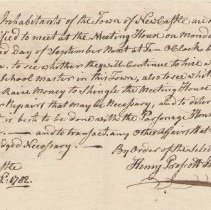 Inhabitants of the Town of New Castle are
fied to meet at the Meeting House on Mond
d day of September Next at Ten OClock
to see whether they will Continue to hire a
School Master in this Town, also to see whet
Raise Money to Shingle the Meeting House
Repairs that may be Necessary, and to deter
is best to be done with the Parsonage House
and to transact any other affairs that
Necessary
By Order of the Sele
Henry Prescott
1782